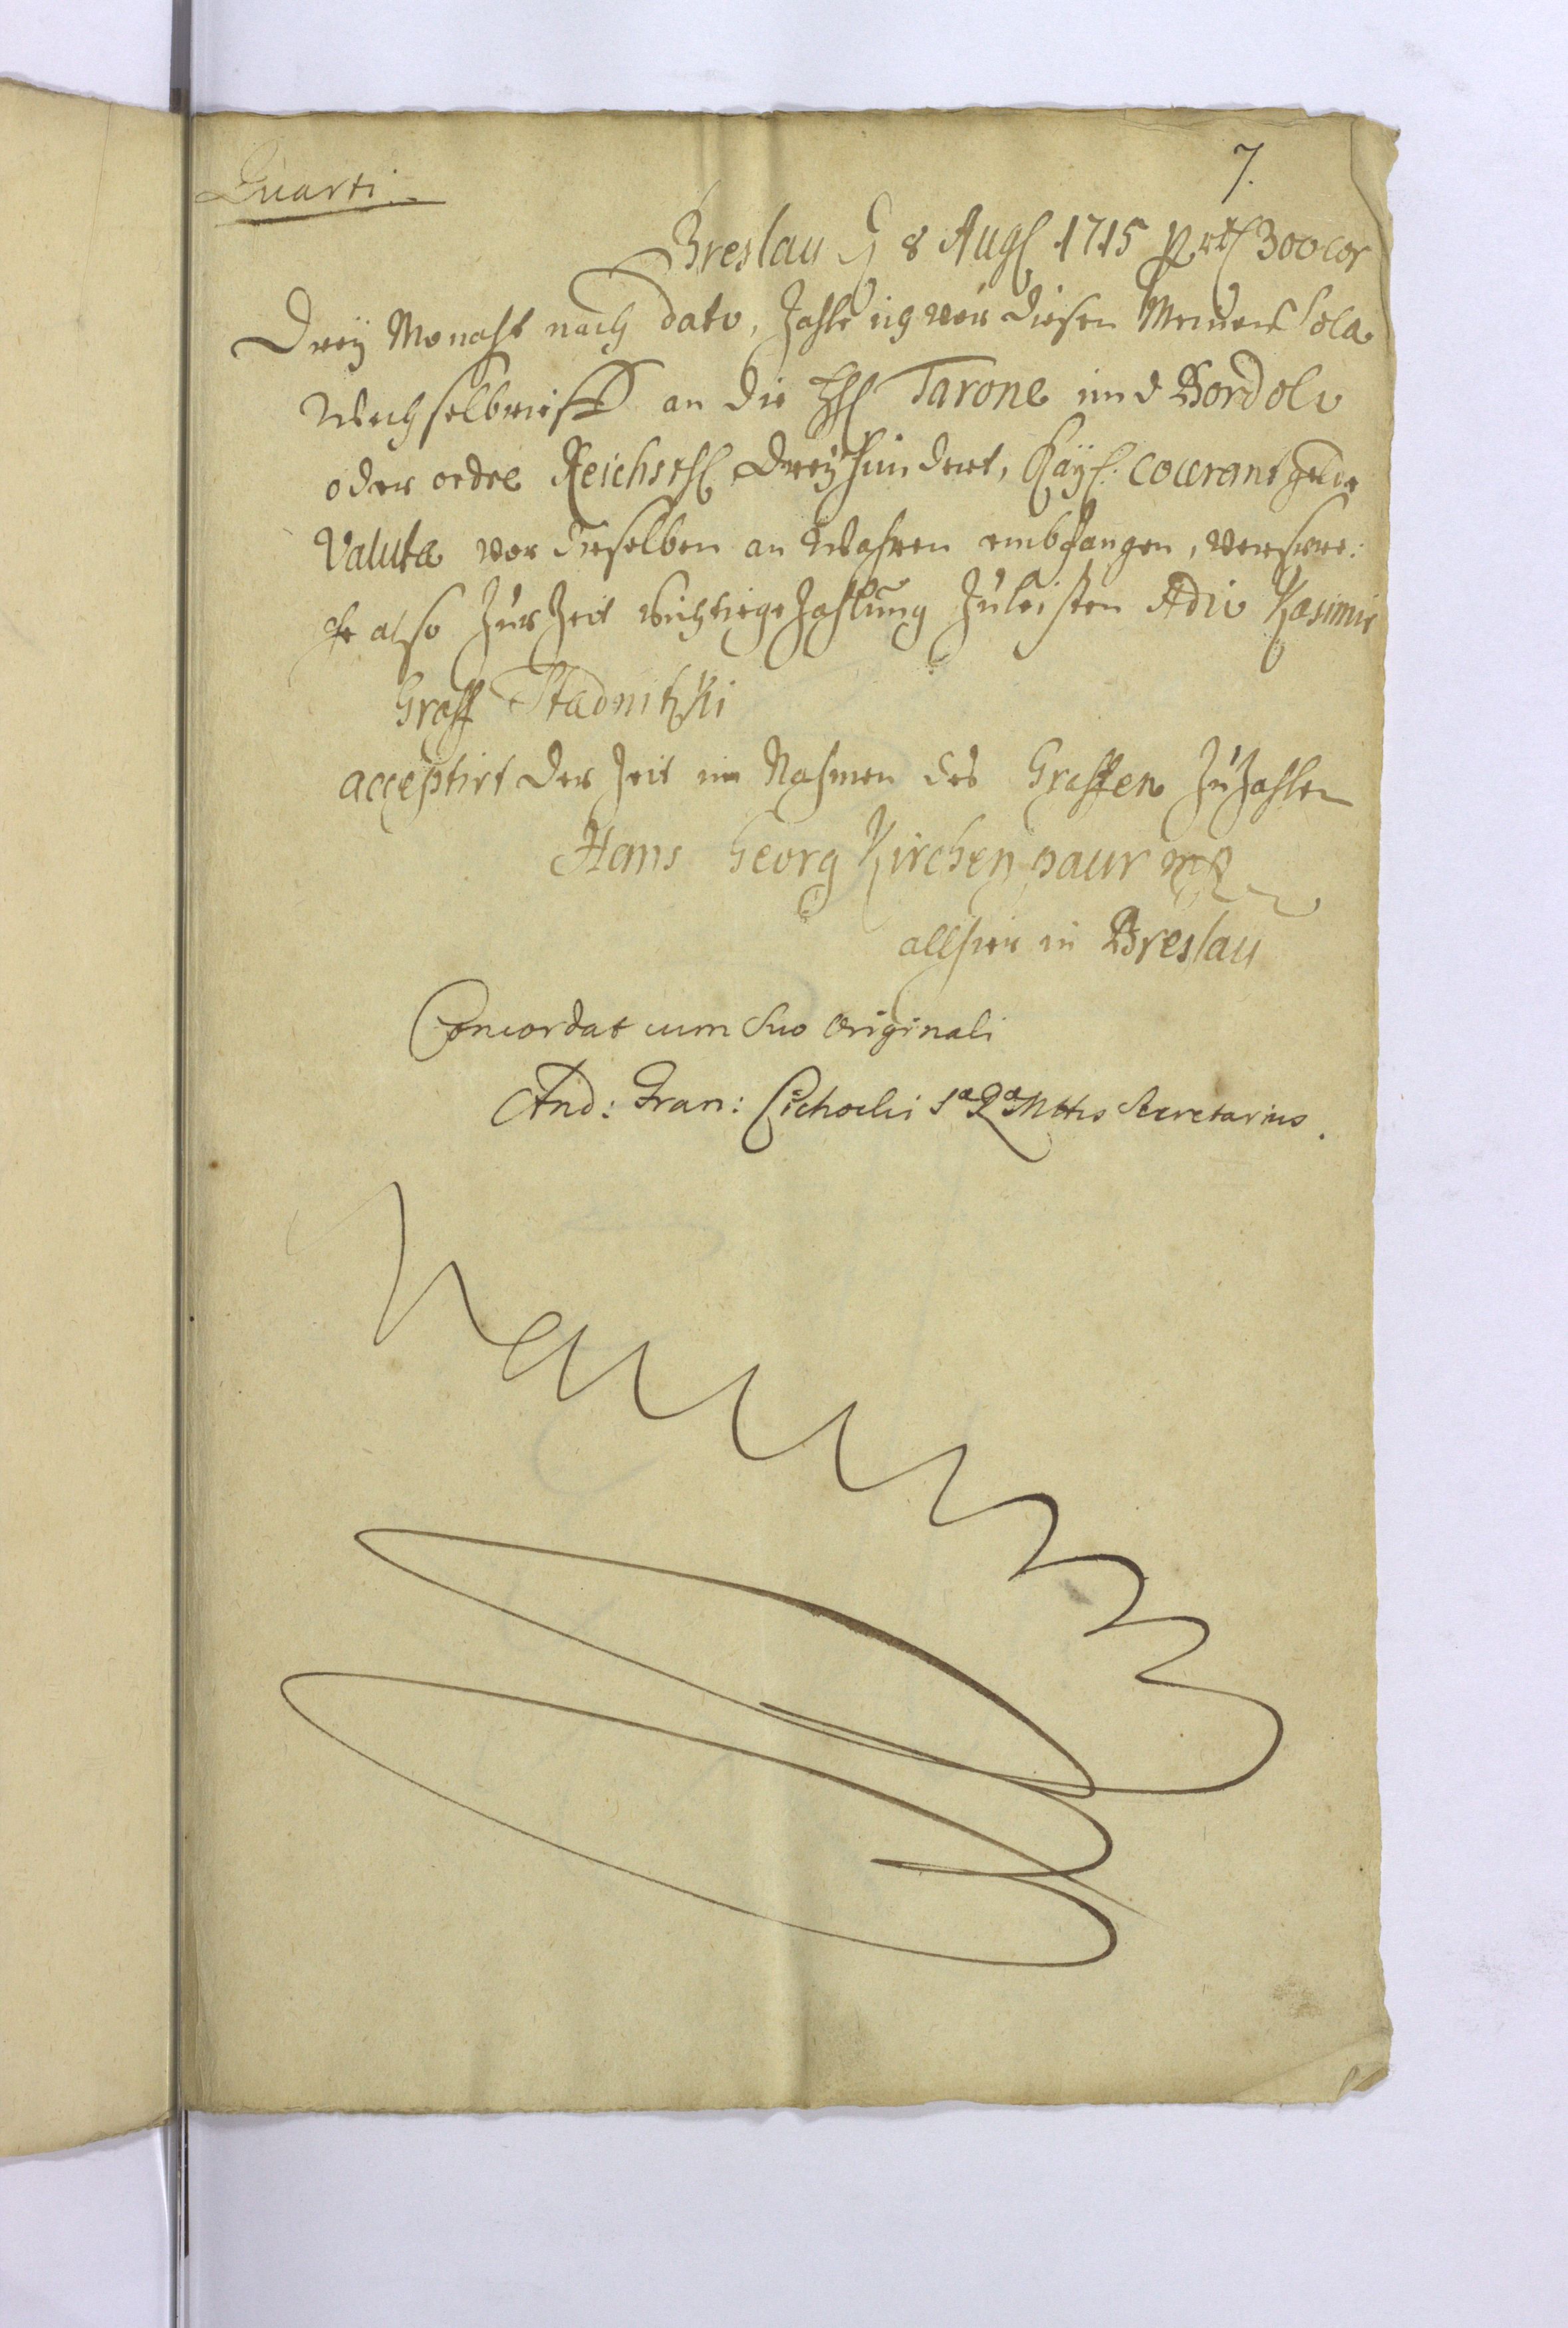 Quarti
7.
Breslau d 8 Aug 1715 pr rt 300 cor
Dreÿ Monaht nach dato, zahle ich vor diesen Meinen Sola
Wechselbrieff an die HH Tarone und Bordolo
oder ordre Reichsthl Dreÿhundert, Kayß. courant gelde
Valuta von dieselben an Wahren embfangen, verspre:
che also zur Zeit richtige Zahlung zu leisten Adio Kasimir
Graff Stadnitzki
acceptirt der Zeit im Nahmen des Graffen zu zahlen
Hans Georg Kirchenpaur mp
allhier in Breslau
Concordat cum suo Originali
And: Fran: Cichocki Sæ Ræ Mttis Secretarius.